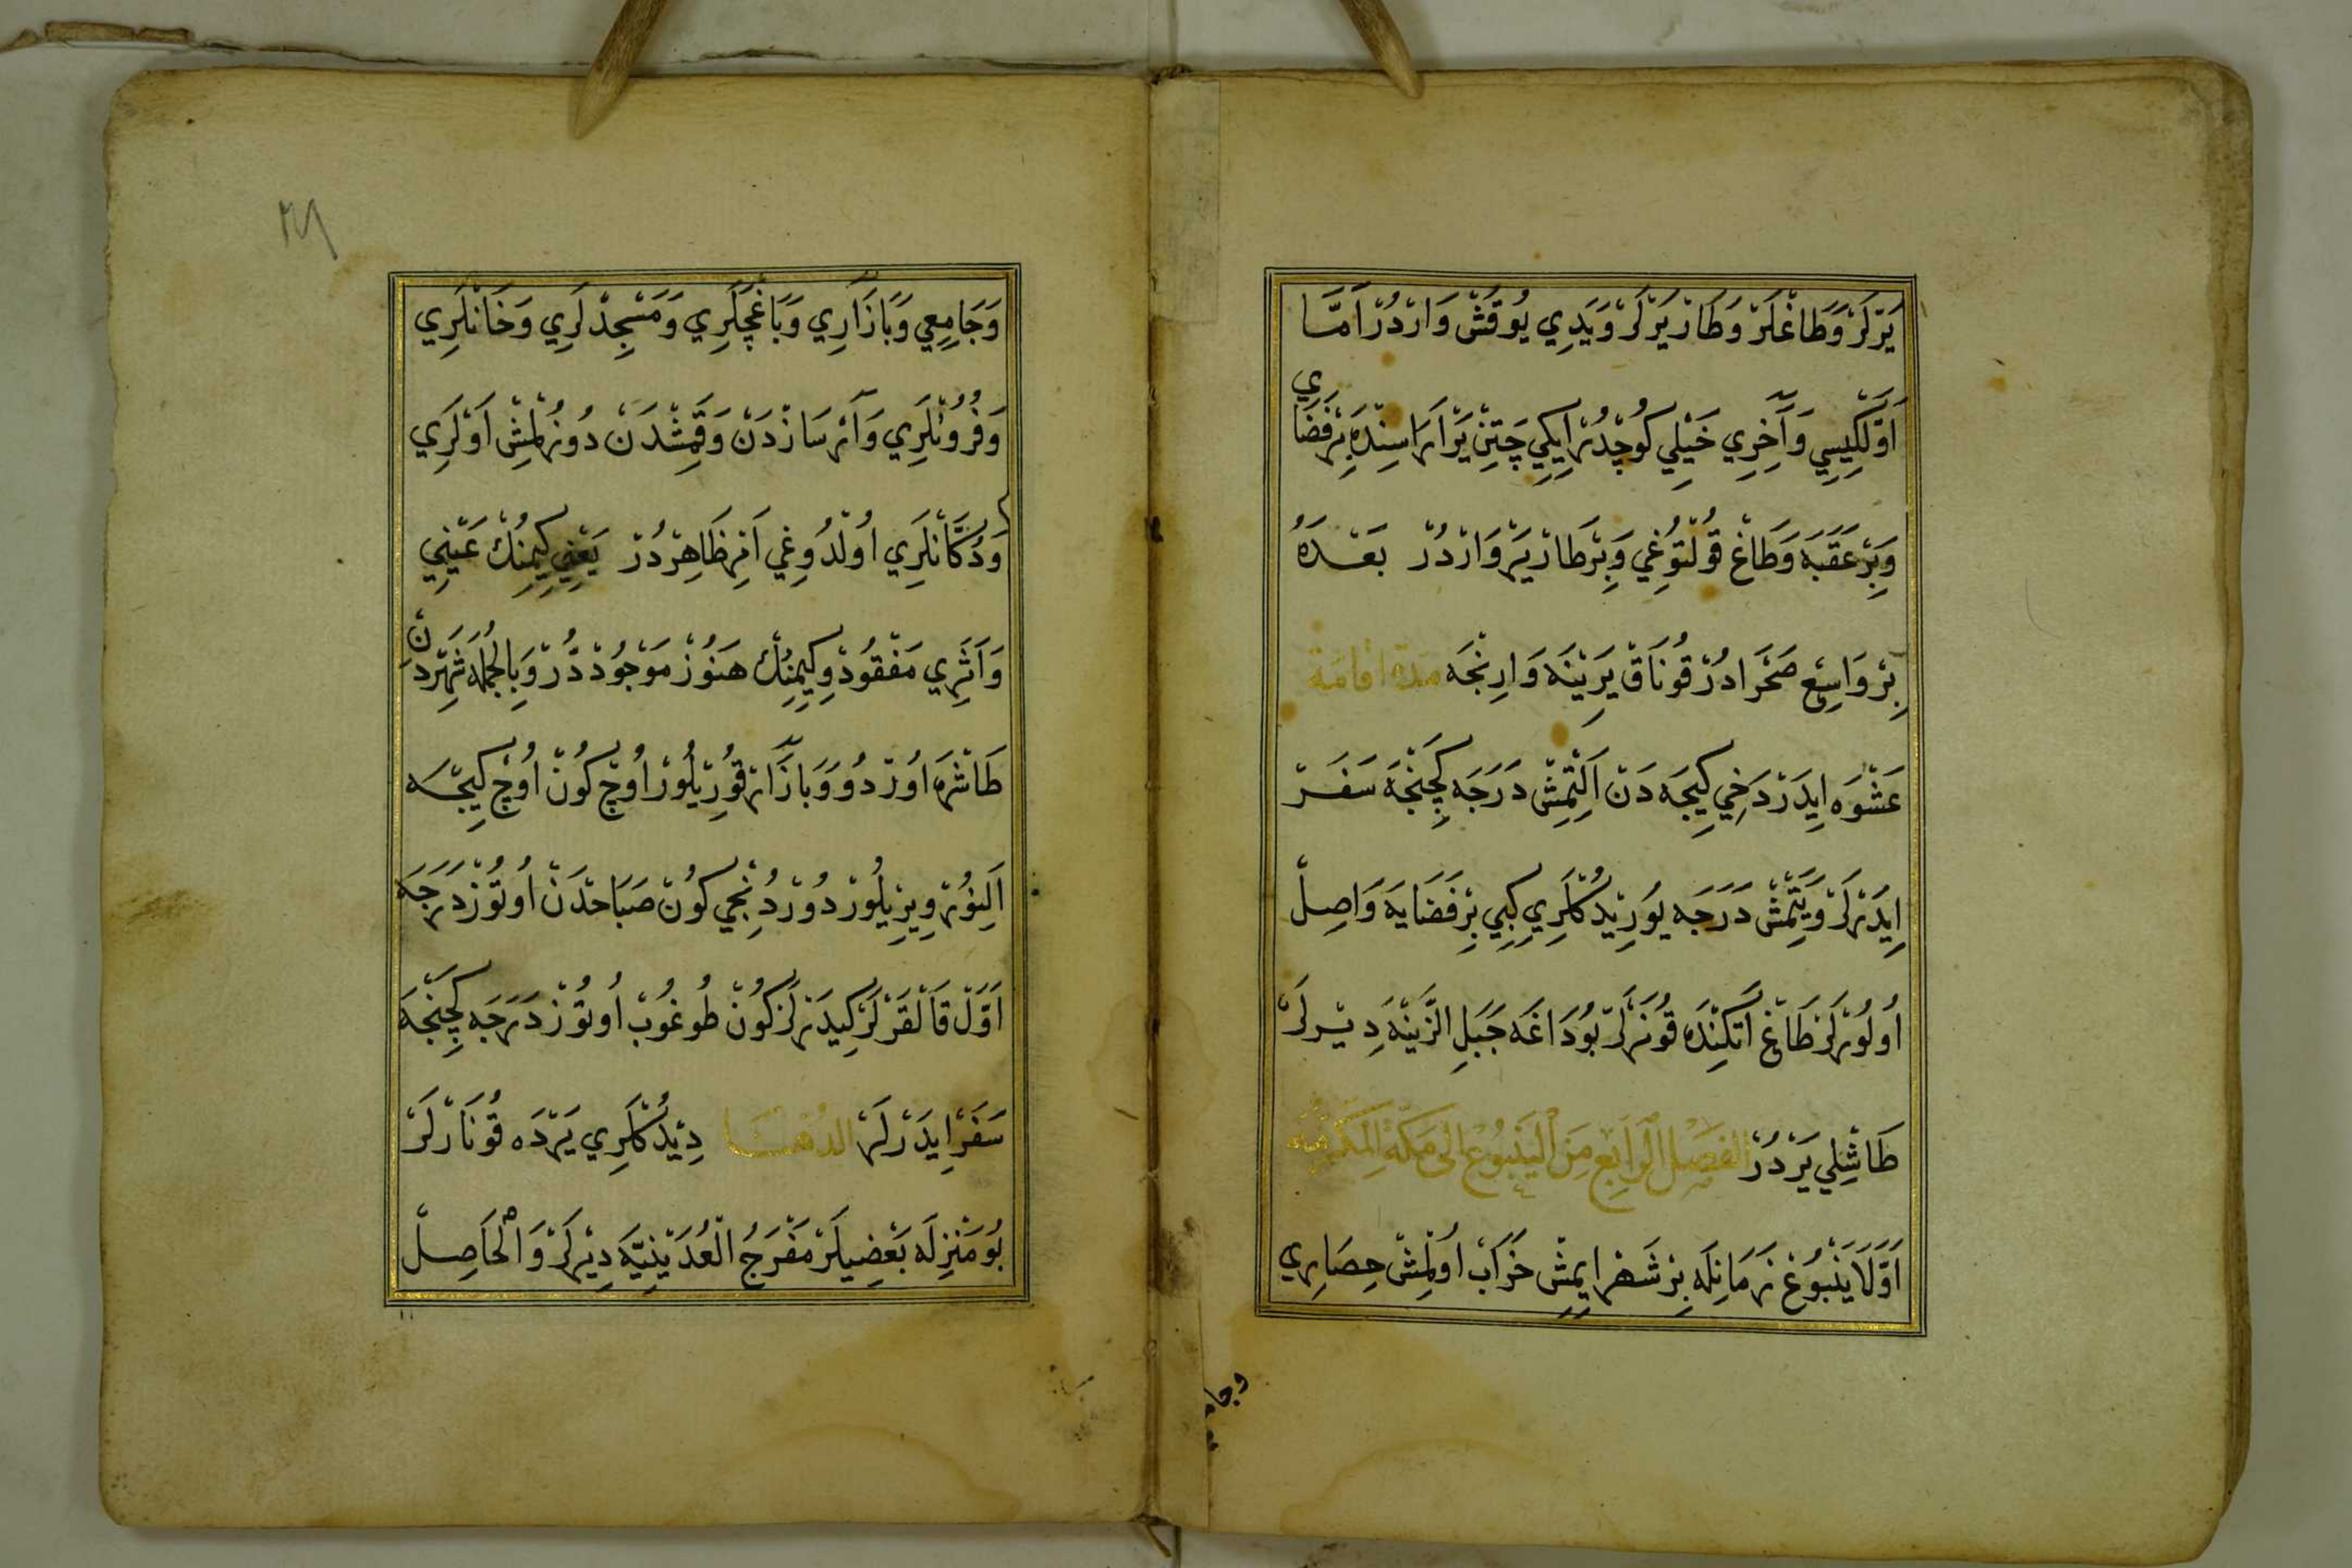 يَرْلَرْ وَطَاغْلَرْ وَطَارْ يَرْلَرْ وَيَدِي يُوقُشْ وَارْدُرْ اَمَّا
اَوَّلْكِيسِي وَآخِرِي خَيْلِي كُوجْدُرْ اِيكِي چَتِنْ يَرْ اَرَاسِنْدَه بِرْ فَضَايِ
وَبِرْ عَقَبَه وَطَاغْ قُولْتُوغِي وَبِرْ طَارْ يَرْ وَارْدُرْ بَعْدَهُ
بِرْ وَاسِعْ صَحْرَادُرْ قُونَاقْ يَرِينَه وَارِنْجَه مدة اقامة
عَشْوَه اِيدَرْ دَخِي كِيجَه دَنْ اَلْتْمِشْ دَرَجَه كَچِنْجَه سَفَرْ
اِيدَرْلَرْ وَيَتْمِشْ دَرَجَه يُورِيدُكْلَرِي كِبِي بِرْ فَضَايَه وَاصِلْ
اُولُورْلَرْ طَاغْ اَتَكِنْدَه قُونَرْلَرْ بُو دَاغَه جَبَلِ الزَّيْنَه دِيْرلَرْ
طَاشْلِي يَرْدُرْ الفَصْلُ الرَابِعْ مِنَ الْيَنْبُوعْ اِلَى مَكَّةِ الْمُكَرَّمَه
اَوَّلَا يَنْبُوعْ زَمَانِلَه بِرْ شَهْر اِيمِشْ خَرَابْ اُولْمِشْ حِصَارِي
وجا
٢٨
وَجَامِعِي وَبَازَارِي وَبَاغْچَلَرِي وَمَسْجِدْلَرِي وَخَانْلَرِي
وَفُرُونْلَرِي وَآنَرْ سَازْدَنْ وَقَمِشْدَنْ دُوزُلْمِشْ اَوْلَرِي
وَدُكَّانْلَرِي اُولْدُوغِي اَنِرْ ظَاهِرْدُرْ يَعْنِي كِيمِنُكْ عَيْنِي
وَاَثَرِي مَفْقُودْ وَكِيمِنُكْ هَنُوزْ مَوْجُودْدُرْ وَبِالْجُمْلَه شَهِرْدَنْ
طَاشْرَه اُورْدُو وَبَازَارْ قُورِيلُورْ اُوچْ كُونْ اُوچْ كِيجَه
اَلِنُورْ وِيرِيلُورْ دُورْدُنْجِي كُونْ صَبَاحْدَنْ اُوتُوزْ دَرَجَه
اَوَّلْ قَالْقَرْلَرْ كِيدَرْلَرْ كُونْ طُوغُوبْ اُوتُوزْ دَرَجَه كَچِنْجَه
سَفَرْ اِيدَرْلَرْ الدُهْنَا دِيْدُكْلَرِي يَرْدَه قُونَارْلَرْ
بُو مَنْزِلَه بَعْضِيلَرْ مَفْرَجُ الْعُدَيْنِيَّه دِيْرلَرْ وَالْحَاصِلْ